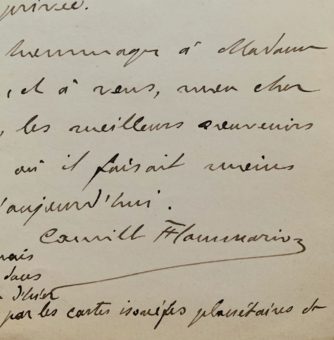 privée.
hommages à Madame
, et à vous, mon cher
, les meilleurs souvenirs
où il faisait moins
aujourd'hui.
Camille Flammarion
mais
dans
d'hier
par les cartes planétaires et